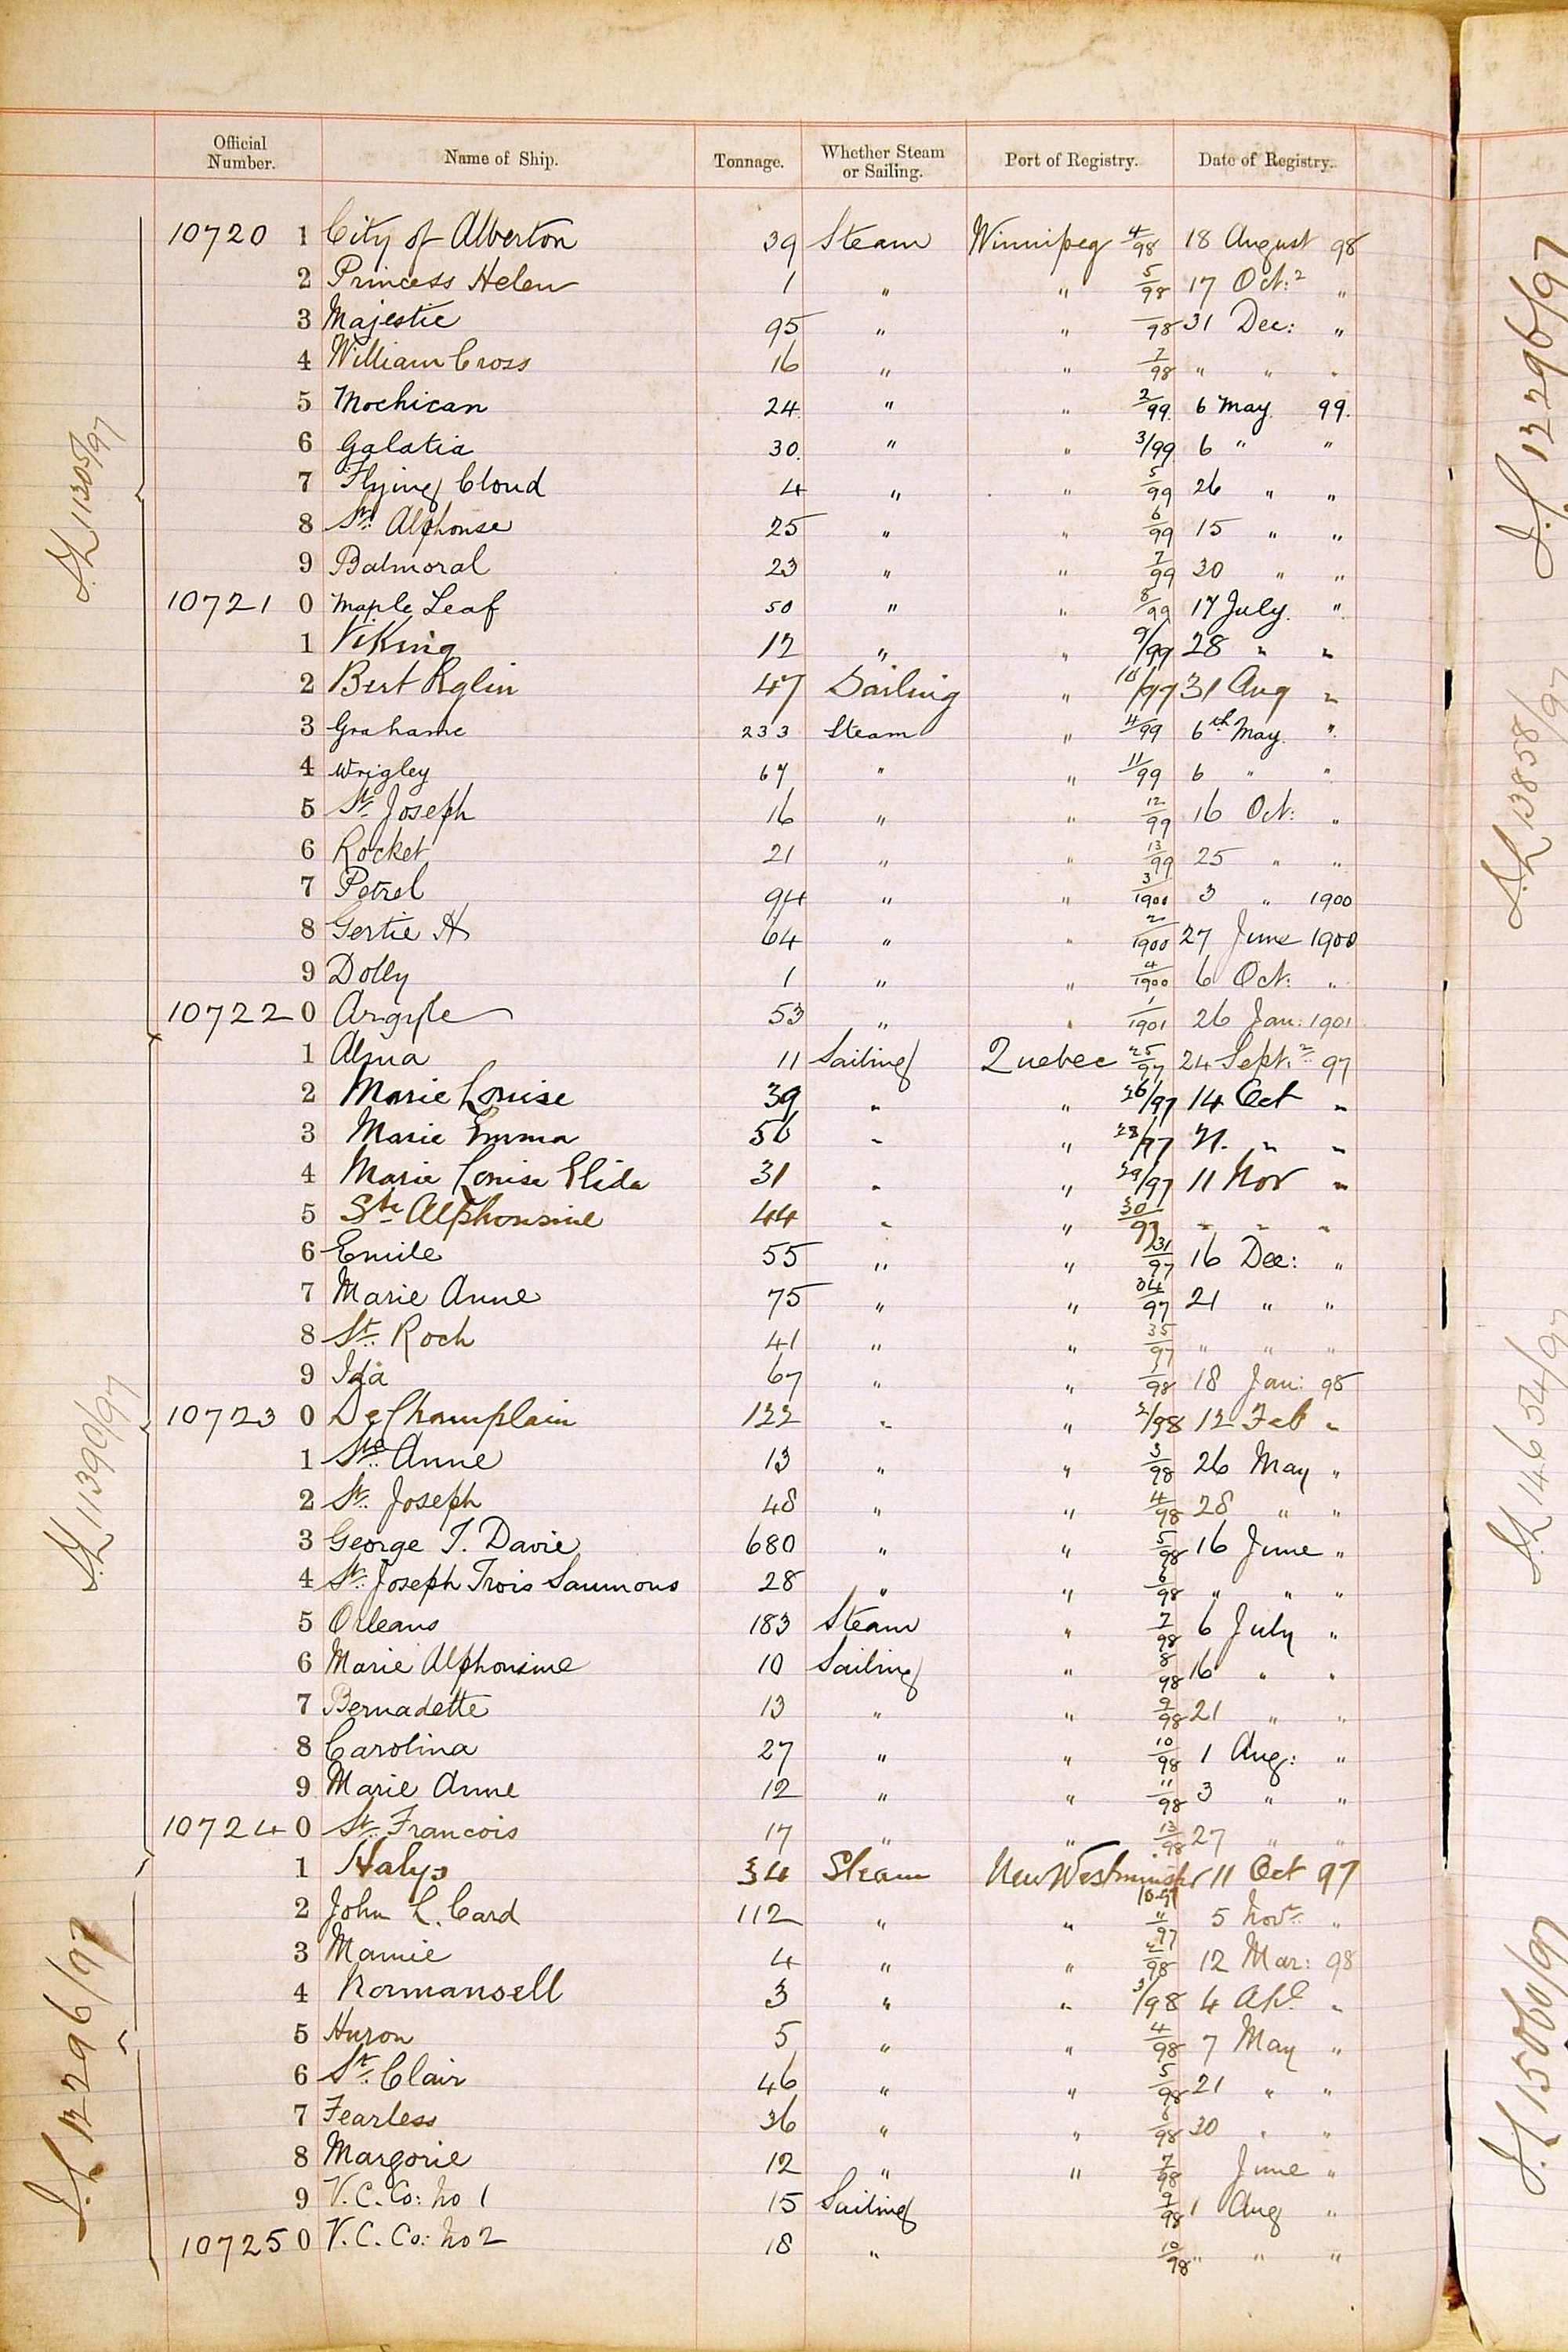 Official Number. Name of Ship. Tonnage. Whether Steam or Sailing. Port of Registry. Date of Registry.
10720 1 City of Alberton 39 Steam Winnipeg 4/98 18 August 98
2 Princess Helen 1 " " 5/98 17 Oct: "
3 Majestic 95 " " /98 31 Dec: "
4 William Cross 16 " " 7/98 " " "
5 Mochican 24 " " 2/99 6 May 99.
6 Galatia 30. " " 3/99 6 " "
7 Flying Cloud 4 " " 5/99 26 " "
8 St. Alphonse 25 " " 6/99 15 " "
9 Balmoral 23 " " 7/99 30 " "
10721 0 Maple Leaf 50 " " 8/99 17 July. "
1 Viking 12 " " 9/99 28 " "
2 Bert 47 Sailing " 31 Aug "
3 Grahame 233 Steam " 4/99 6th May. "
4 Wrigley 67 " " 11/99 6 " "
5 St. Joseph 16 " " 12/99 16 Oct: "
6 Rocket 21 " " 13/99 25 " "
7 Petrel 94 " " 3/1900 3 " 1900
8 Gertie H 64 " " 2/1900 27 June 1900
9 Dolly 1 " " 4/1900 6 Oct: "
10722 0 Argyle 53 " " 1/1901 26 Jan: 1901
1 Alma 11 Sailing Quebec 25/97 24 Sept. 97
2 Marie Louise 39 " " 26/97 14 Oct "
3 Marie Emma 56 " " 28/97 " "
4 Marie Louise Elida 31 " " 29/97 11 Nov "
5 Ste Alphonsine 44 " " 30/97 " " "
6 Emile 55 " " 31/97 16 Dec: "
7 Marie Anne 75 " " 34/97 21 " "
8 St. Roch 41 " " 35/97 " " "
9 Ida 67 " " 1/98 18 Jan: 98
10723 0 De Champlain 122 " " 2/98 12 Feb "
1 Ste. Anne 13 " " 3/98 26 May "
2 St. Joseph 48 " " 4/98 28 " "
3 George T. Davie 680 " " 5/98 16 June "
4 St. Joseph Trois Saumons 28 " " 6/98 " " "
5 Orleans 183 Steam " 7/98 6 July "
6 Marie Alphonsine 10 Sailing " 8/98 16 " "
7 Bernadette 13 " " 9/98 21 " "
8 Carolina 27 " " 10/98 1 Aug: "
9 Marie Anne 12 " " 11/98 3 " "
10724 0 St. Francois 17 " " 13/98 27 " "
1 Halys 34 Steam New Westminster 10.97 11 Oct 97
2 John L. Card 112 " " 11/97 5 Novr. "
3 Mamie 4 " " 2/98 12 Mar: 98
4 Normansell 3 " " 3/98 4 Apl "
5 Huron 5 " " 4/98 7 May "
6 St. Clair 46 " " 5/98 21 " "
7 Fearless 36 " " 6/98 30 " "
8 Margorie 12 " " 7/98 June "
9 V. C. Co: No 1 15 Sailing 9/98 1 Aug "
10725 0 V. C. Co: No 2 18 " 10/98 " " "
S.L 11305/97
S.L 11390/97
S.L 12296/97
S.L 12296/97
S.L 13858/97
S.L 14654/97
S.L 15060/97